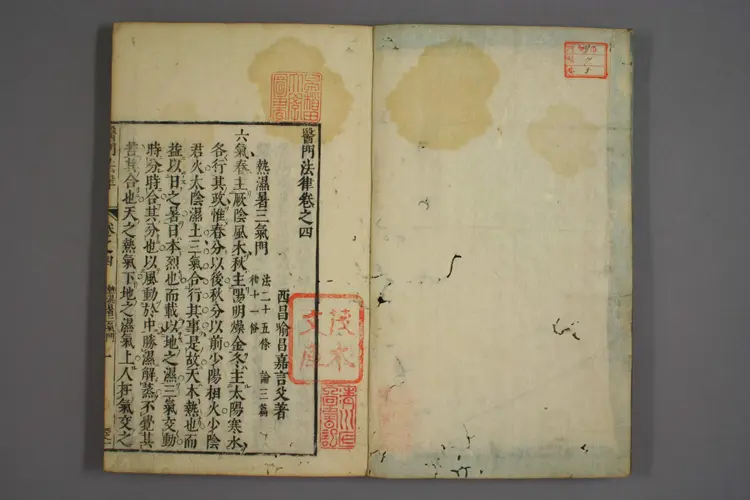 醫門法律卷之四
西昌喻昌嘉言父著
熱濕暑三氣門
法二十五條
論三篇
律十一條
六氣春主厥陰風木秋主陽明燥金冬主太陽寒水
各行其政惟春分以後秋分以前少陽相火少陰
君火太陰濕土三氣合行其事是故天本熱也而
益以日之暑日本烈也而載以地之濕三氣交動
時分時合其分也以風動於中勝濕解蒸不覺其
苦其合也天之熱氣下地之濕氣上人在氣交之
醫門法律
卷之四
熱濕暑三氣門
一
淺木
文庫